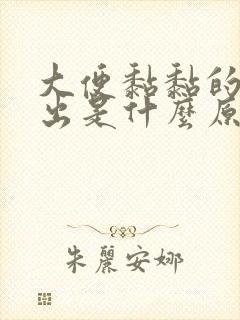 大便黏黏的
出是什麼原
朱麗安娜